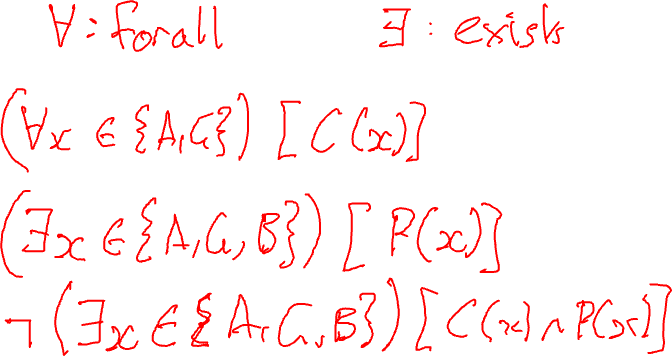 ∀: forall ∃: exists
(∀x ∈ {A, G}) [C(x)]
(∃x ∈ {A, G, B}) [P(x)]
¬(∃x ∈ {A, G, B}) [C(x) ∧ P(x)]